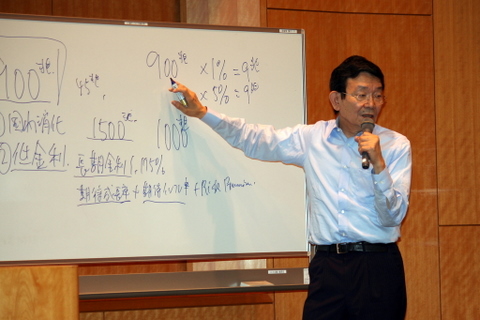 900兆
900兆 × 1% = 9兆
45兆, × 5% = 9兆
①国内消化 1500兆 1000兆
②低金利 長期金利 1.75%
期待成長率 + 期待インフレ率 + Risk Premium.